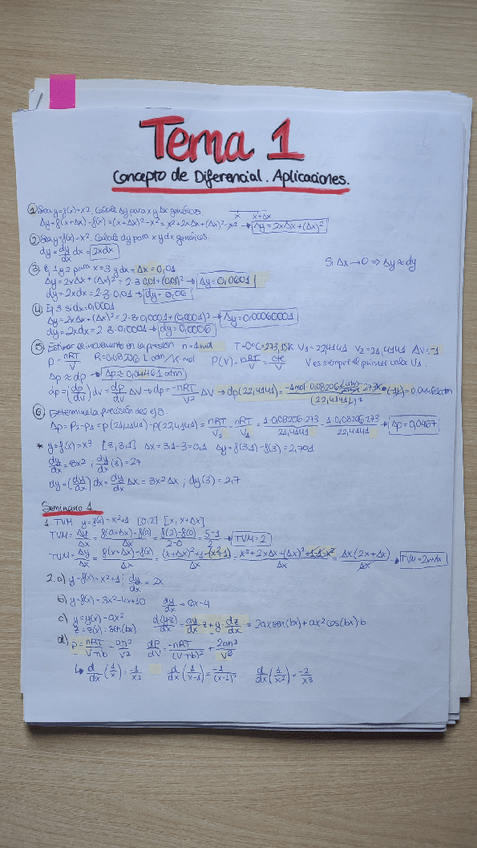 Tema 1
Concepto de Diferencial. Aplicaciones.
① Sea y=f(x)=x². Calcula Δy para x y Δx genéricos.
x x+Δx
Δy=f(x+Δx)-f(x)=(x+Δx)²-x²=x²+2xΔx+(Δx)²-x² → Δy=2xΔx+(Δx)²
② Sea y=f(x)=x². Calcula dy para x y dx genéricos.
dy=dy/dx dx=2xdx
Si Δx→0 ⇒ Δy≈dy
③ Ej 1 y 2 para x=3 y dx=Δx=0,01
Δy=2xΔx+(Δx)²=2·3·0,01+(0,01)² → Δy=0,0601
dy=2xdx=2·3·0,01 → dy=0,06
④ Ej 3 si dx=0,0001
Δy=2xΔx+(Δx)²=2·3·0,0001+(0,0001)² → Δy=0,00060001
dy=2xdx=2·3·0,0001 → dy=0,0006
⑤ Estimar el incremento en la presión n=1mol T=0ºC=273,15K V₁=22,4141 V₂=21,4141 ΔV=-1
P=nRT/V R=0,08206 L atm/K mol P(V)=nRT/V=cte/V
Δp≈dp →
dp=(dp/dv)dv=dp/dv ΔV → dp=-nRT/V² ΔV → dp(22,4141)=
⑥ Determina la precisión del ej 5
Δp=P₂-P₁=p(21,4141)-p(22,4141)=nRT/V₂-nRT/V₁=1·0,08206·273/21,4141-1·0,08206·273/22,4141 → Δp=0,0467
* y=f(x)=x³ [3, 3,1] Δx=3,1-3=0,1 Δy=f(3,1)-f(3)=2,791
dy/dx=3x²; dy/dx(3)=27
dy=(dy/dx)dx=dy/dx Δx=3x²Δx; dy(3)=2,7
Seminario 1
1. TVM y=f(x)=x²+1 [0,2] [x, x+Δx]
TVM=Δy/Δx=f(a+Δx)-f(a)/Δx=f(2)-f(0)/2-0=5-1/2 → TVM=2
TVM=Δy/Δx=f(x+Δx)-f(x)/Δx=(x+Δx)²+1-(x²+1)/Δx=x²+2xΔx+(Δx)²+1-1-x²/Δx=Δx(2x+Δx)/Δx → TVM=2x+Δx
2. a) y=f(x)=x²+1; dy/dx=2x
b) y=f(x)=3x²-4x+10 dy/dx=6x-4
c) y=y(x)=ax² d(y·z)/dx=dy/dx z+y·dz/dx=2ax sen(bx)+ax²cos(bx)·b
z=z(x)=sen(bx)
d) P=nRT/V-nb-an²/V² dP/dV=-nRT/(V-nb)²+2an²/V³
↳ d/dx(1/x)=-1/x² d/dx(1/x-1)=-1/(x-1)² d/dx(1/x²)=-2/x³